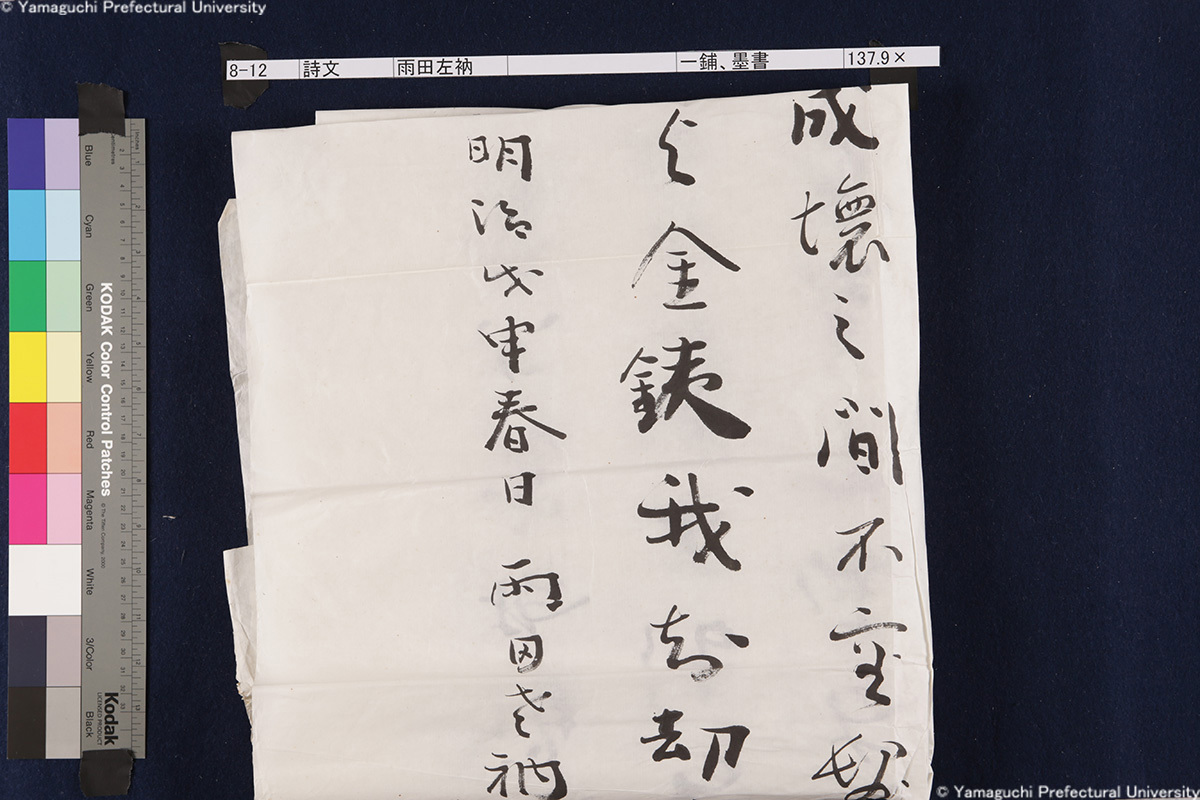 © Yamaguchi Prefectural University
8-12 詩文 雨田左衲 一鋪、墨書 137.9×
成壞之間不容髪
金銕我却
明治戊申春日 雨田老衲
Blue
Cyan
Green
Yellow
Red
Magenta
White
3/Color
Black
KODAK Color Control Patches
© The Tiffen Company, 2000
Kodak
LICENSED PRODUCT
© Yamaguchi Prefectural University